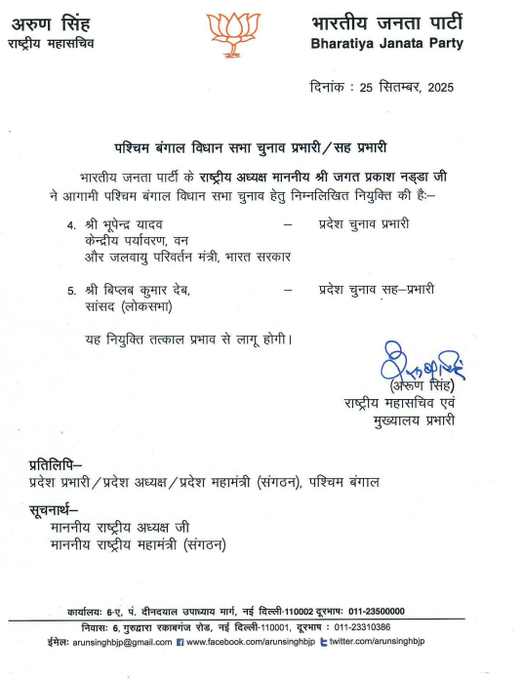 अरुण सिंह
राष्ट्रीय महासचिव
भारतीय जनता पार्टी
Bharatiya Janata Party
दिनांक : 25 सितम्बर, 2025
पश्चिम बंगाल विधान सभा चुनाव प्रभारी/सह प्रभारी
भारतीय जनता पार्टी के राष्ट्रीय अध्यक्ष माननीय श्री जगत प्रकाश नड्डा जी
ने आगामी पश्चिम बंगाल विधान सभा चुनाव हेतु निम्नलिखित नियुक्ति की हैः–
4. श्री भूपेन्द्र यादव – प्रदेश चुनाव प्रभारी
केन्द्रीय पर्यावरण, वन
और जलवायु परिवर्तन मंत्री, भारत सरकार
5. श्री बिप्लब कुमार देब, – प्रदेश चुनाव सह–प्रभारी
सांसद (लोकसभा)
यह नियुक्ति तत्काल प्रभाव से लागू होगी।
(अरूण सिंह)
राष्ट्रीय महासचिव एवं
मुख्यालय प्रभारी
प्रतिलिपि–
प्रदेश प्रभारी/प्रदेश अध्यक्ष/प्रदेश महामंत्री (संगठन), पश्चिम बंगाल
सूचनार्थ–
माननीय राष्ट्रीय अध्यक्ष जी
माननीय राष्ट्रीय महामंत्री (संगठन)
कार्यालयः 6-ए, पं. दीनदयाल उपाध्याय मार्ग, नई दिल्ली-110002 दूरभाषः 011-23500000
निवासः 6, गुरुद्वारा रकाबगंज रोड, नई दिल्ली-110001, दूरभाष : 011-23310386
ईमेलः arunsinghbjp@gmail.com www.facebook.com/arunsinghbjp twitter.com/arunsinghbjp